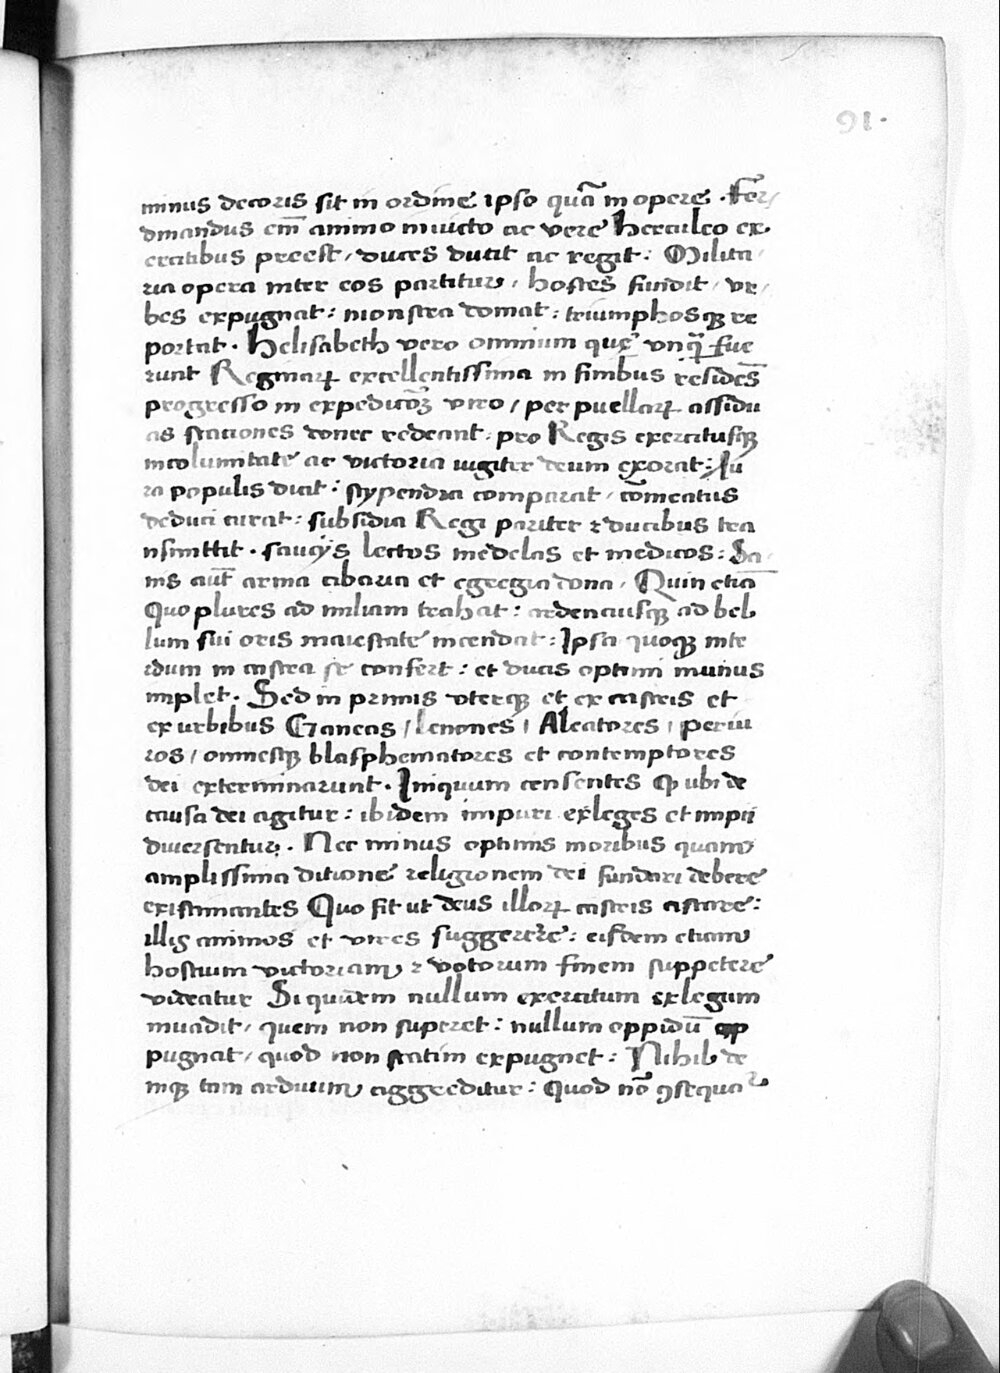 91.
minus decoris sit in ordine ipso quā in opere. Fer/
dinandus em̄ animo inuicto ac vere herculeo ex.
ercitibus preest / duces ducit ac regit: Milita/
ria opera inter eos partitur / hostes fundit / vr/
bes expugnat: monstra domat: triumphosqꝫ re
portat. Helisabeth vero omnium quę vnqꝫ̄ fue
runt Reginarꝝ excellentissima in finibus residēs
progresso in expeditōꝫ viro / per puellarꝝ assidu
as stationes donec redeant: pro Regis exercitusqꝫ
incolumitate ac victoria iugiter deum exorat: Iu
ra populis dicit: stypendia comparat / cōmeatus
deduci curat: subsidia Regi pariter ⁊ ducibus tra
nsmittit. saucijs lectos medelas et medicos: Sa/
nis aūt arma cibaria et egregia dona / Quin etiā
Quo plures ad miliam trahat: ardenciusqꝫ ad bel
lum sui oris maiestate incendat: Ipsa quoqꝫ inte
rdum in castra se confert: et ducis optimi munus
implet. Sed in primis vterqꝫ et ex castris et
ex urbibus Ganeas / lenones / Aleatores / periu
ros / omnesqꝫ blasphematores et contemptores
dei exterminarunt. Iniquum censentes ꝙ ubi de
causa dei agitur: ibidem impuri exleges et impii
diuersentur. Nec minus optimis moribus quam
amplissima ditione religionem dei fundari debere
existimantes Quo fit ut deus illorꝝ castris astare:
illis animos et vires suggerere: eisdem etiam
hostium victoriam ⁊ votorum finem suppetere
videatur Si quidem nullum exercitum exlegum
inuadit / quem non superet: nullum oppidū op
pugnat / quod non statim expugnet: Nihil de
niqꝫ tam arduum aggreditur: Quod nō ꝯsequar